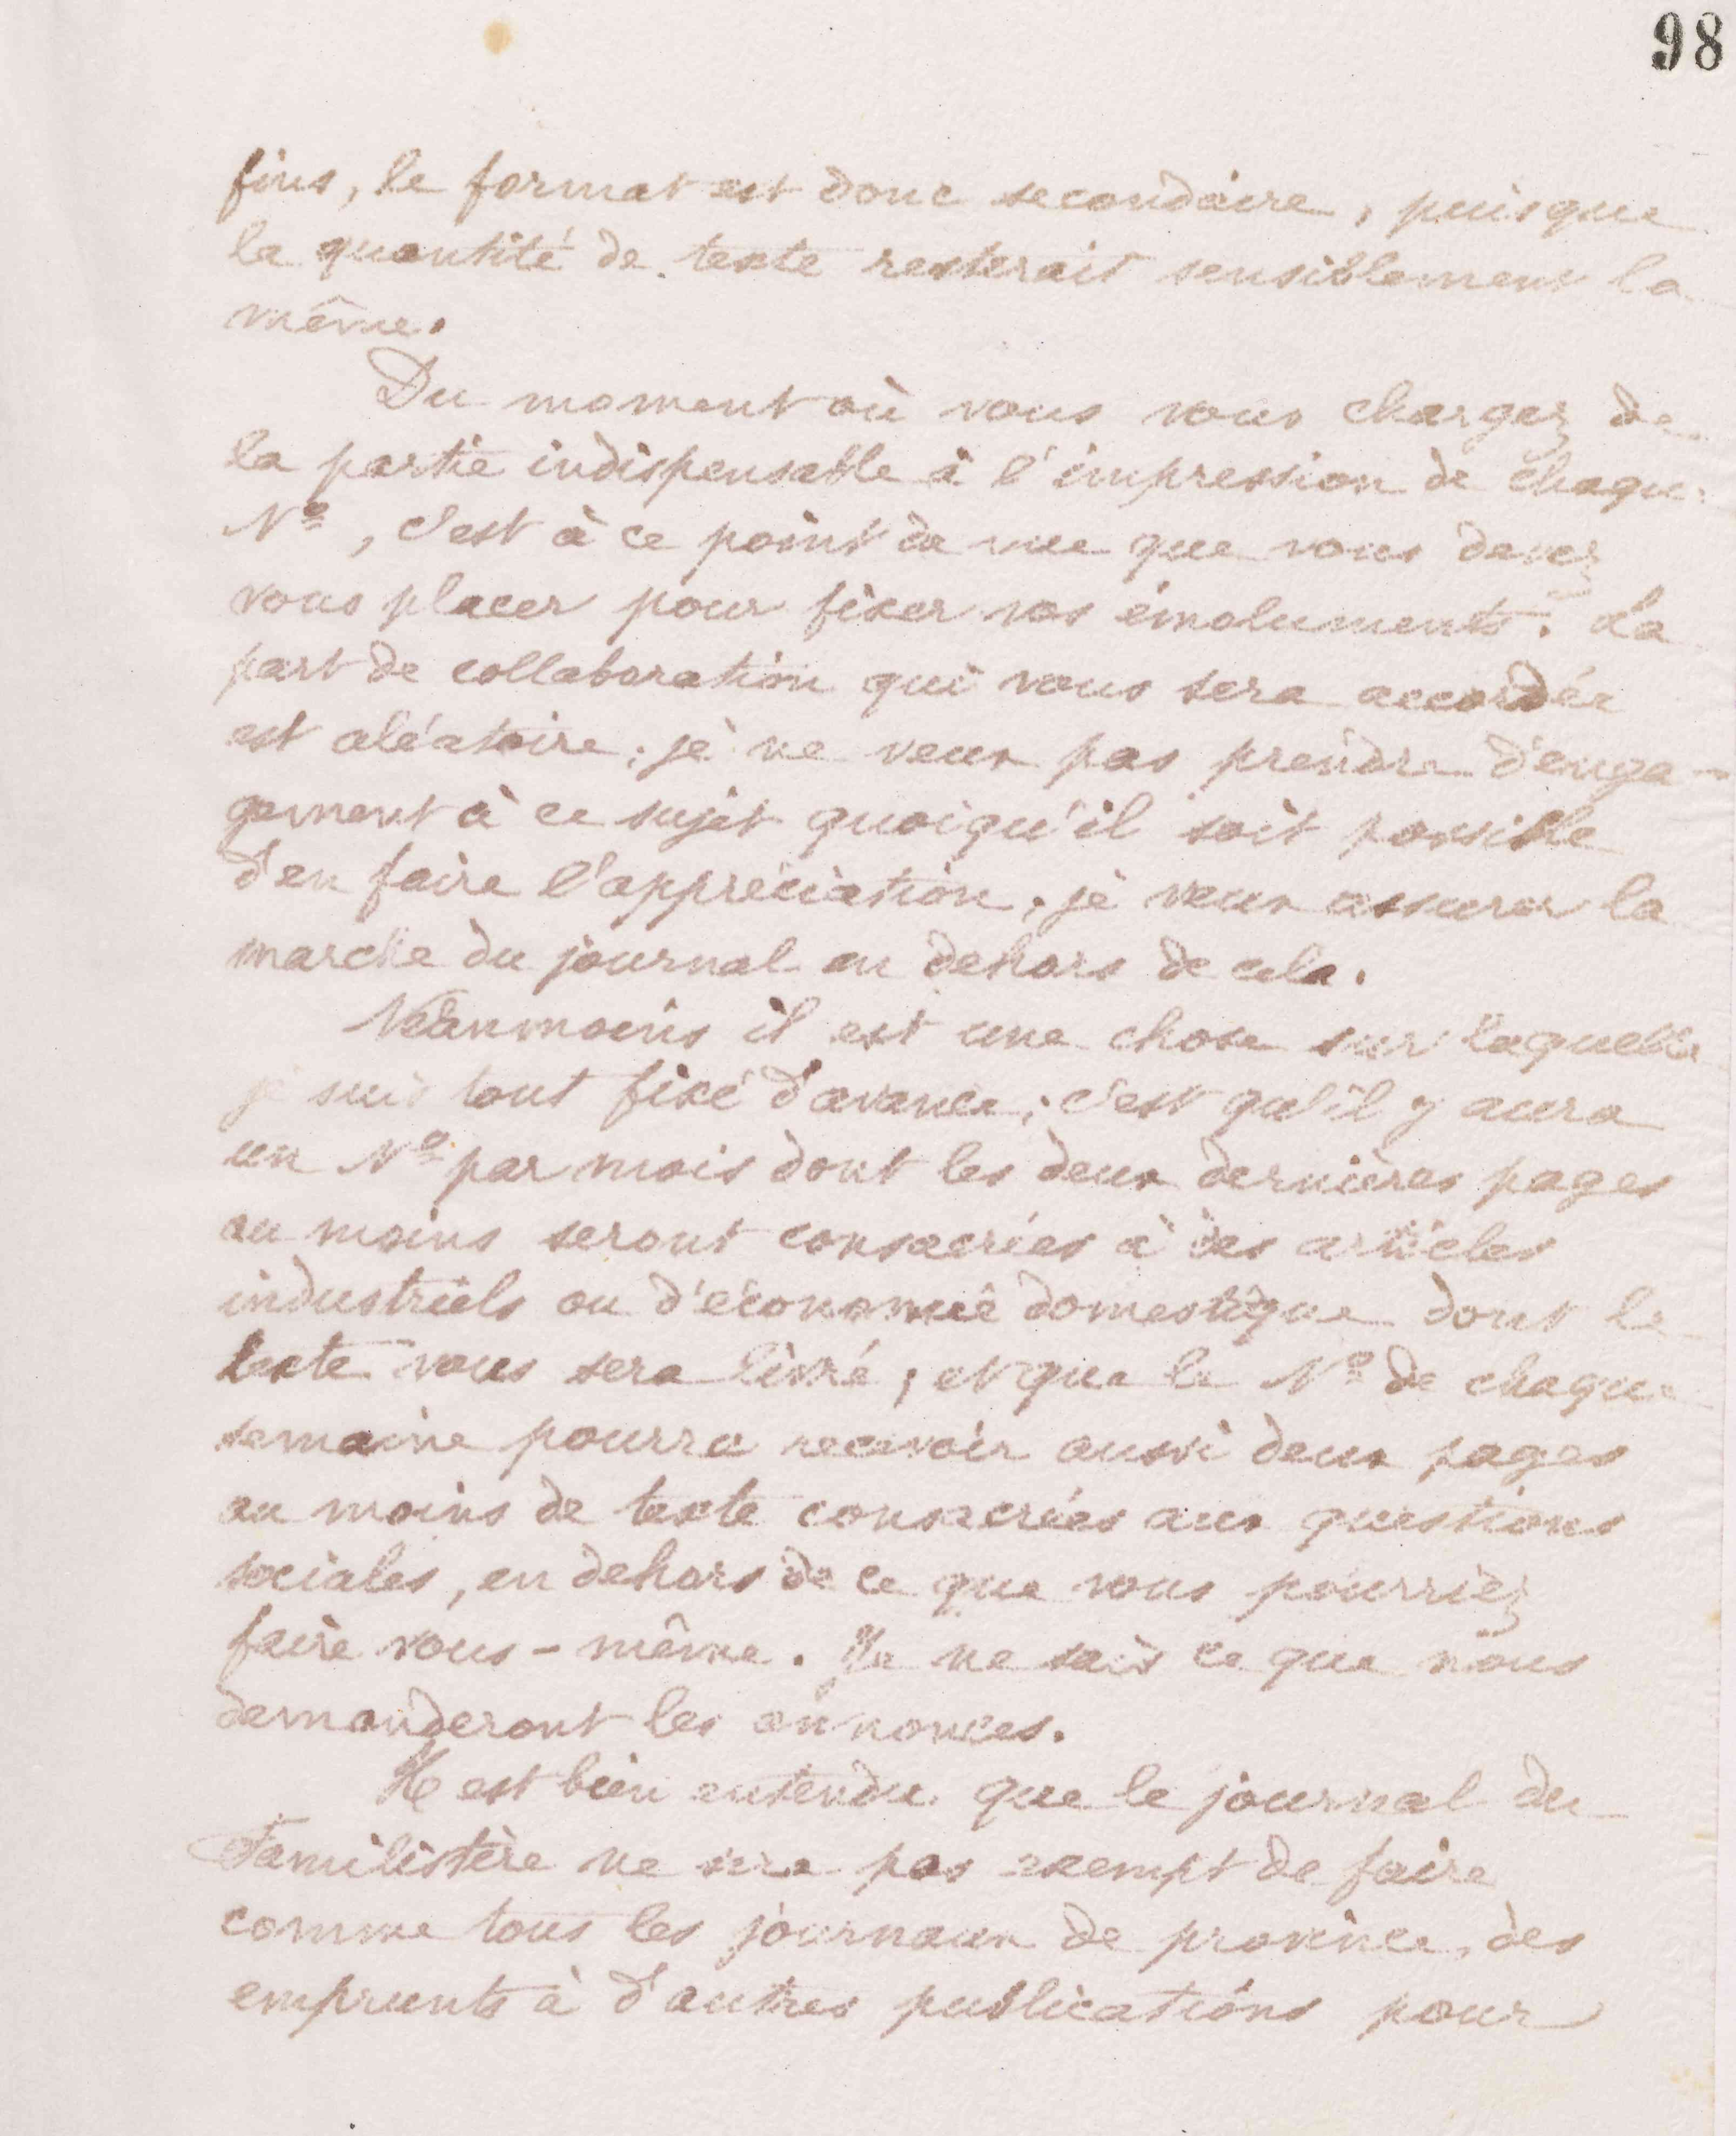 98
fins, le format est donc secondaire, puisque
la quantité de texte resterait sensiblement la
même.
Du moment où vous vous chargez de
la partie indispensable à l'impression de chaque
Nº, c'est à ce point de vue que vous devez
vous placer pour fixer vos émoluments. La
part de collaboration qui vous sera accordée
est aléatoire; je ne veux pas prendre d'enga-
gement à ce sujet quoiqu'il soit possible
d'en faire l'appréciation, je veux assurer la
marche du journal en dehors de cela.
Néanmoins il est une chose sur laquelle
je suis tout fixé d'avance; c'est qu'il y aura
un Nº par mois dont les deux dernières pages
au moins seront consacrées à des articles
industriels ou d'économie domestique dont le
texte vous sera livré, et que le Nº de chaque
semaine pourra recevoir aussi deux pages
au moins de texte consacrées aux questions
sociales, en dehors de ce que vous pourriez
faire vous-même. Je ne sais ce que nous
demanderont les annonces.
Il est bien entendu que le journal du
Familistère ne sera pas exempt de faire
comme tous les journaux de province, des
emprunts à d'autres publications pour